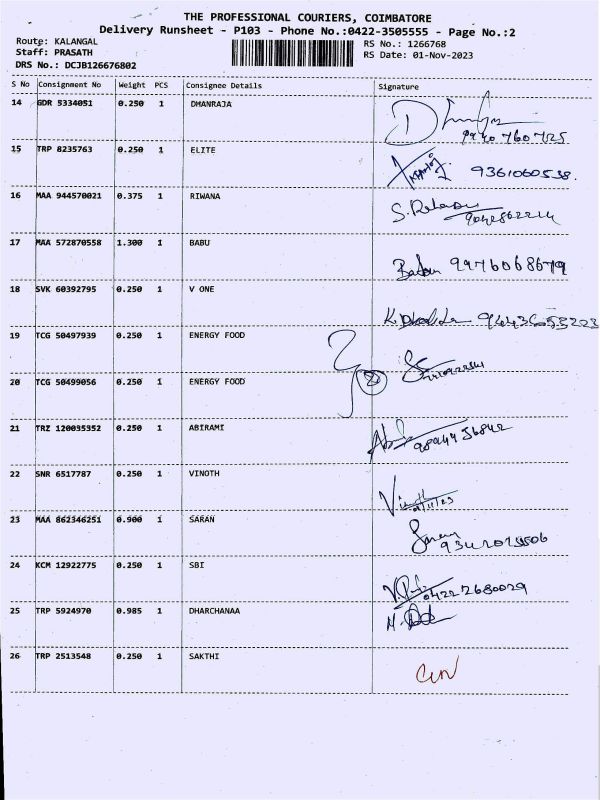 THE PROFESSIONAL COURIERS, COIMBATORE
Delivery Runsheet - P103 - Phone No.:0422-3505555 - Page No.:2
Route: KALANGAL
Staff: PRASATH
DRS No.: DCJB126676802
RS No.: 1266768
RS Date: 01-Nov-2023
S No Consignment No Weight PCS Consignee Details Signature
14 GDR 5334051 0.250 1 DHANRAJA
15 TRP 8235763 0.250 1 ELITE 9361060538.
16 MAA 944570021 0.375 1 RIWANA
17 MAA 572870558 1.300 1 BABU 9976068679
18 SVK 60392795 0.250 1 V ONE
19 TCG 50497939 0.250 1 ENERGY FOOD
20 TCG 50499056 0.250 1 ENERGY FOOD
21 TRZ 120035352 0.250 1 ABIRAMI
22 SNR 6517787 0.250 1 VINOTH
23 MAA 862346251 0.900 1 SARAN
24 KCM 12922775 0.250 1 SBI 04222680029
25 TRP 5924970 0.985 1 DHARCHANAA
26 TRP 2513548 0.250 1 SAKTHI